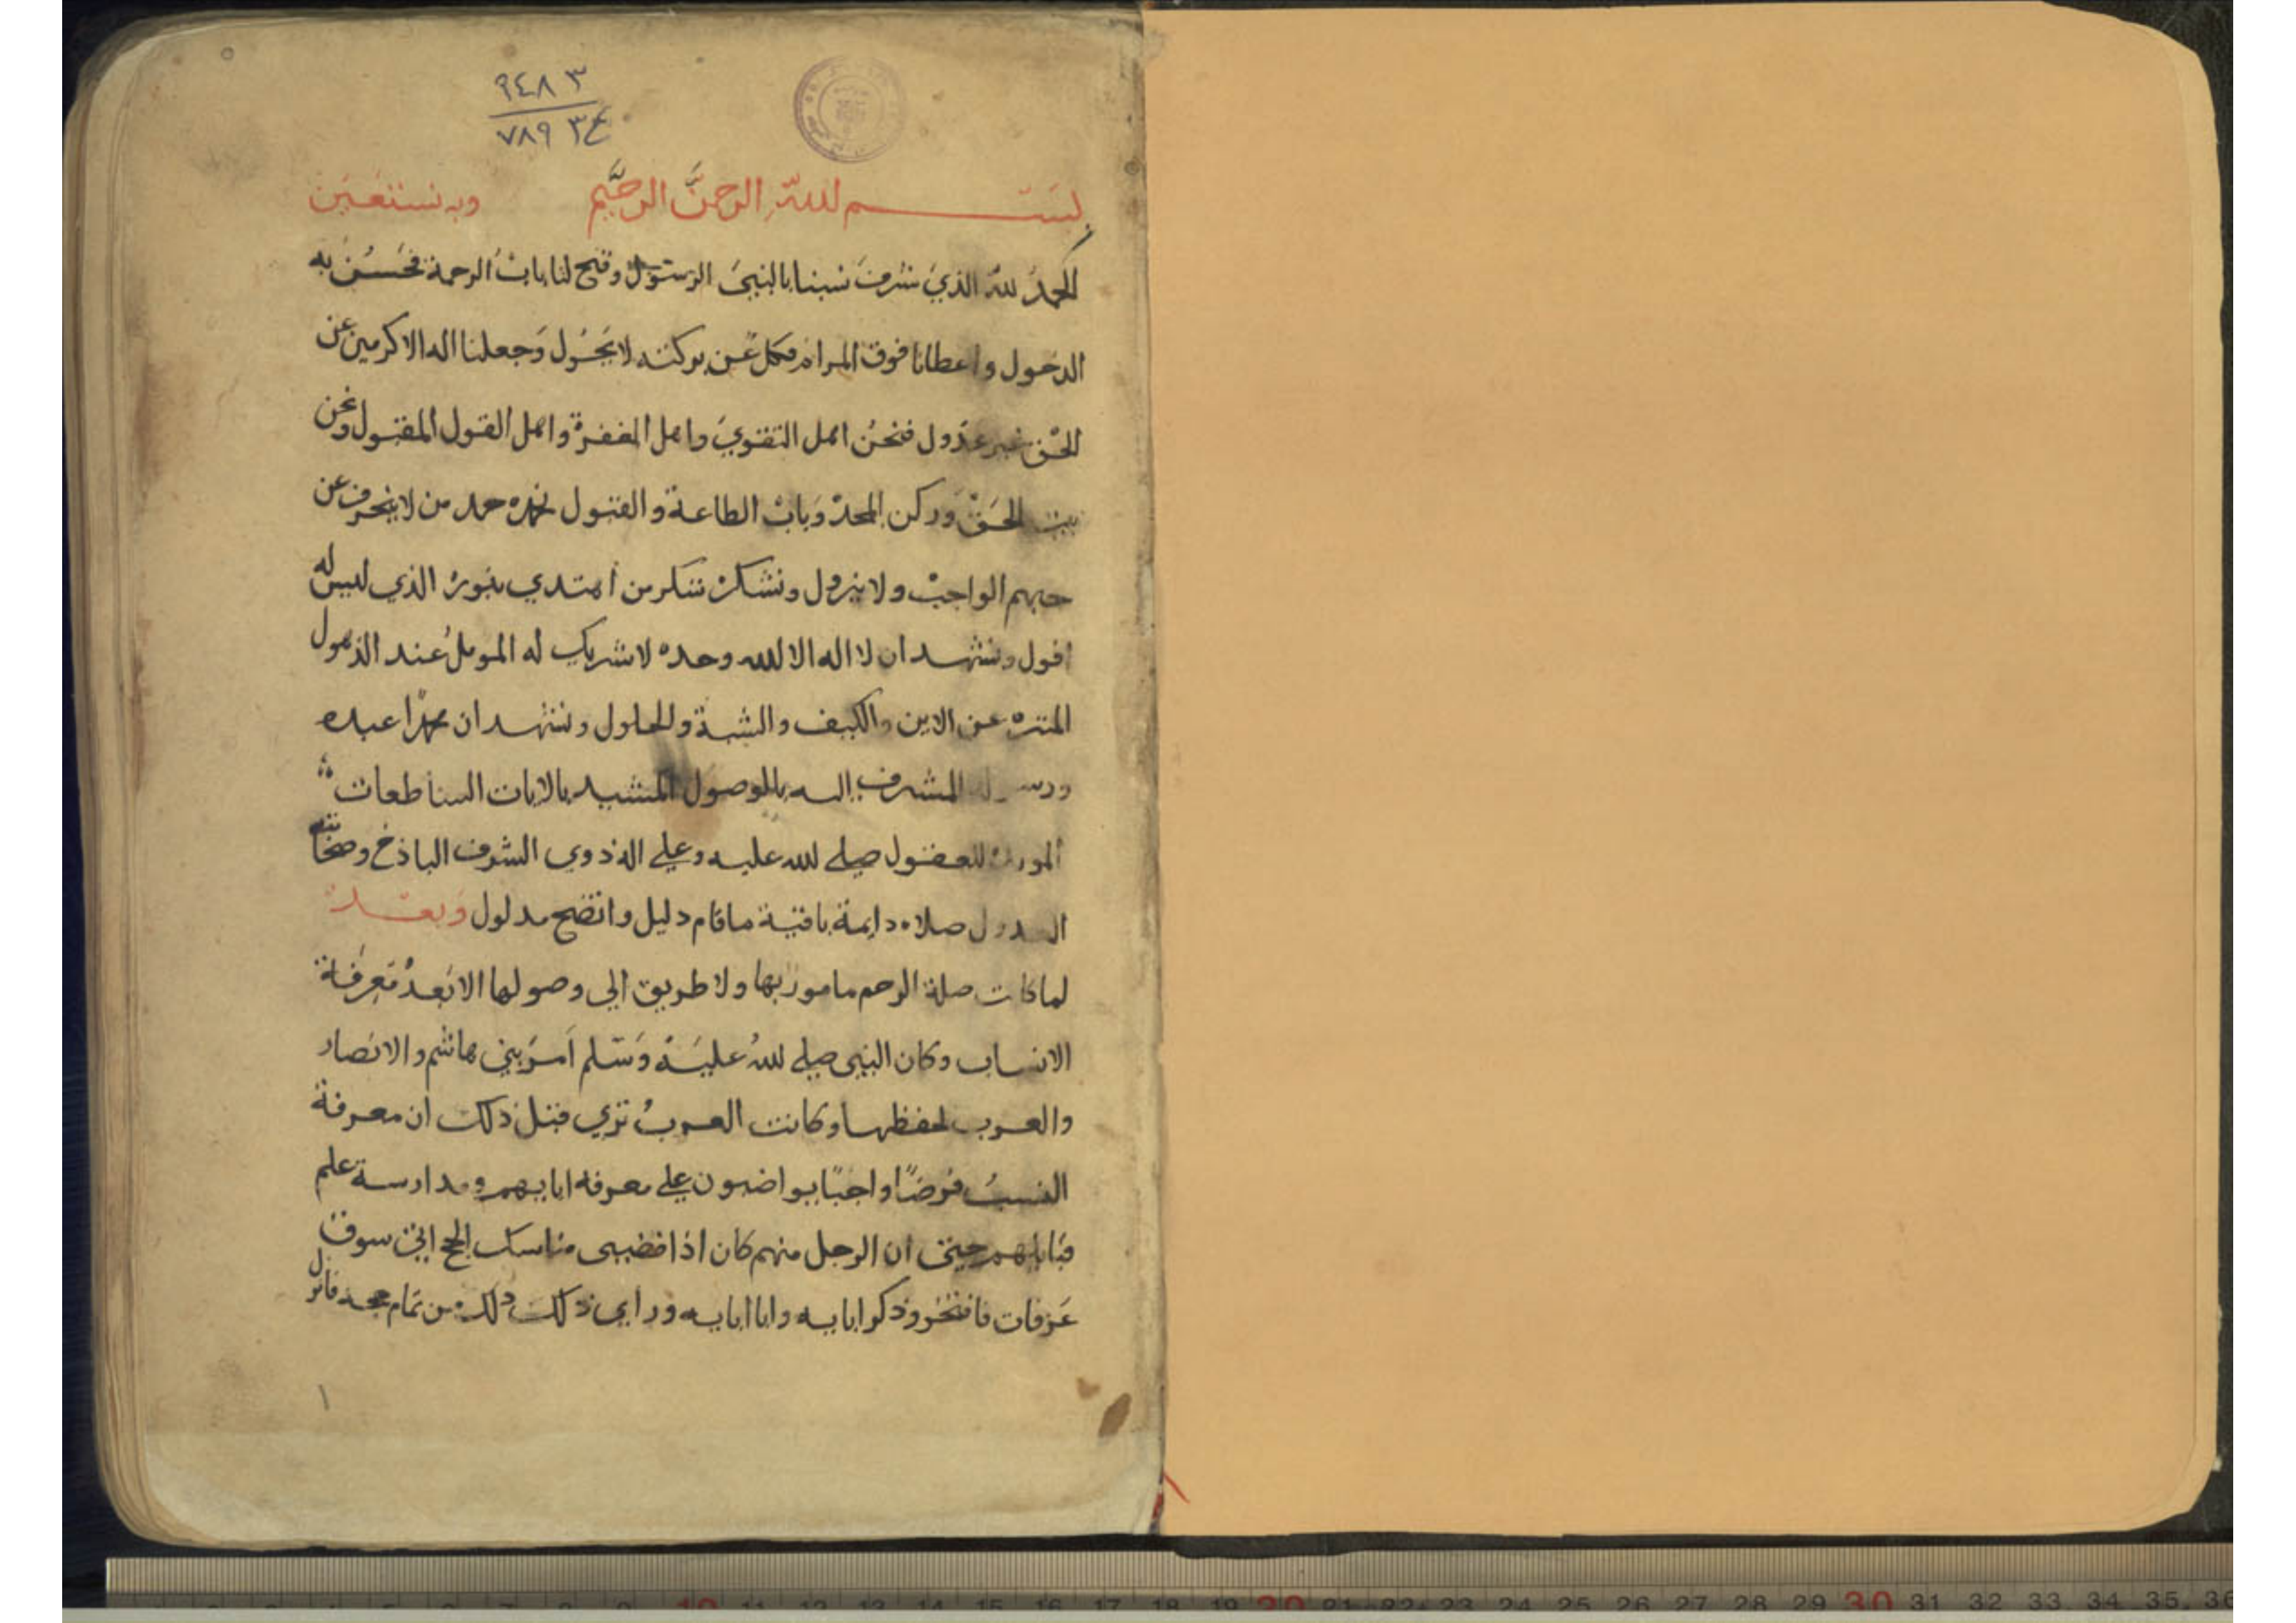 ٩٤٨٣
٧٨٩ ٣ع
بســـم الله الرحمن الرحيم وبه نستعين
الحمد لله الذي شرف نسبنا بالنبي الرسول وفتح لنا باب الرحمة فحسن به
الدخول واعطانا فوق المرام فكل عن بركته لا يحول وجعلنا اله الاكرمين عن
الحق غير عدول فنحن اهل التقوي واهل المغفرة واهل القول المقبول ونحن
بيت الحق وركن المجد وباب الطاعة والقبول نحمده حمد من لا ينحرف عن
حبهم الواجب ولا يزول ونشكره شكر من اهتدي بنوره الذي ليس له
افول ونشهد ان لا اله الا الله وحده لا شريك له المومل عند الذهول
المنزه عن الاين والكيف والشبة والحلول ونشهد ان محمدا عبده
ورسوله المشرف اليه بالوصول المشيد بالايات الساطعات
للعقول صلي الله عليه وعلي اله ذوي الشرف الباذخ وصحابته
صلاه دايمة باقية ما قام دليل واتضح مدلول وبعد
لما كانت صلة الرحم مامور بها ولا طريق الي وصولها الا بعد معرفة
الانساب وكان النبي صلي الله عليه وسلم امر بني هاشم والانصار
والعرب لحفظها وكانت العرب تري قبل ذلك ان معرفة
النسب فرضا واجبا يواضبون علي معرفه ابايهم ومدارسة علم
قبايلهم حيتي ان الرجل منهم كان اذا قضيى مناسك الحج اتي سوق
عرفات فافتخر وذكر ابايه وابا ابايه وراي ذلك ذلك من تمام حجه فانزل
١